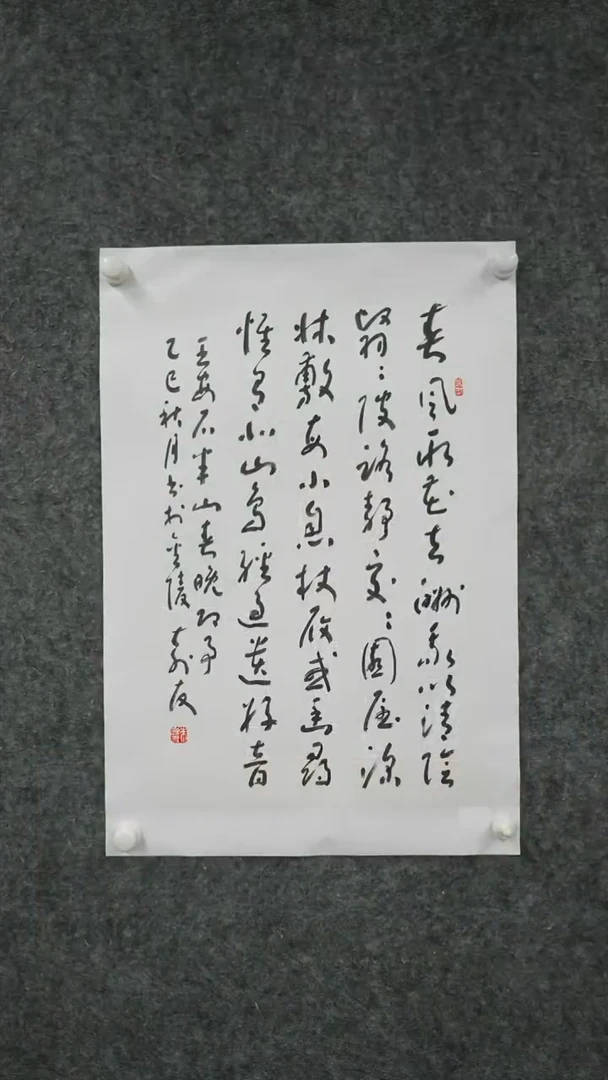 春風取花去酬我以清陰
翳翳陂路靜交交園屋深
床敷每小息杖屨或幽尋
惟有北山鳥經過遺好音
王安石半山春晚即事
乙巳秋月書於金陵